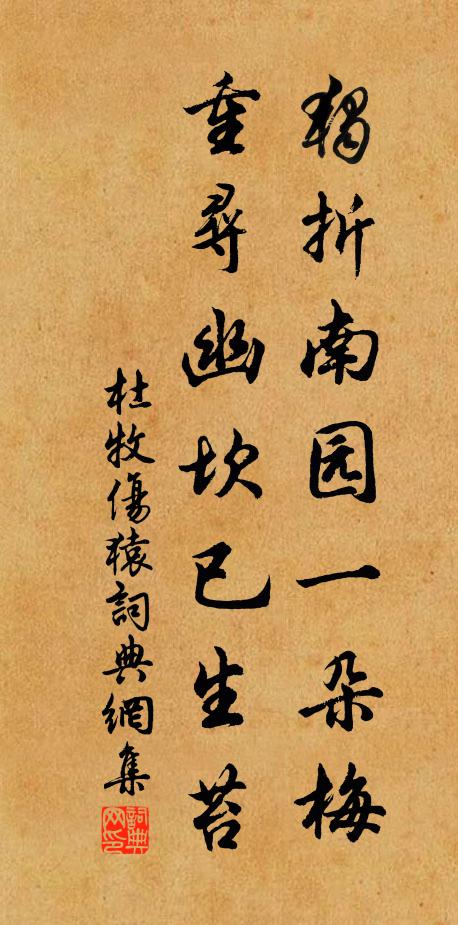 獨折南园一朵梅
重尋幽坎已生苔
杜牧傷猿詞典網集
詞典网印